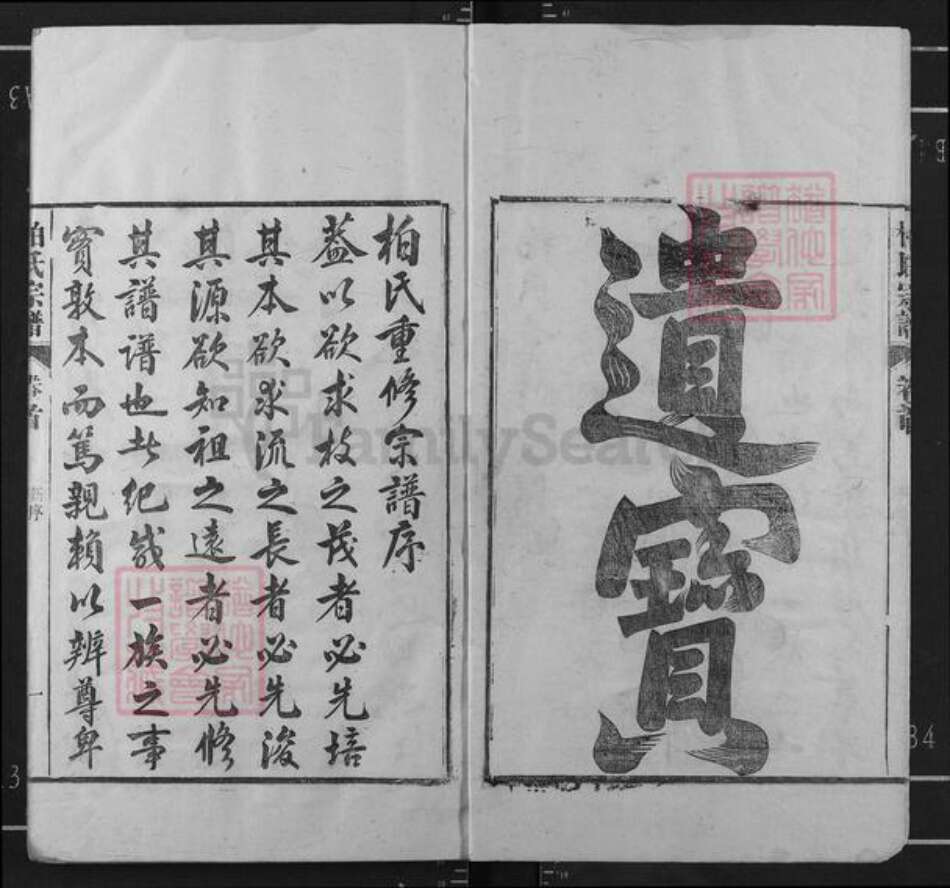 遺寶
柏氏宗譜 卷首
柏氏重修宗譜序
蓋以欲求枝之茂者必先培
其本欲求流之長者必先浚
其源欲知祖之遠者必先修
其譜譜也者紀載一族之事
實敦本而篤親賴以辨尊卑
柏氏宗譜 卷首 一
FamilySearch